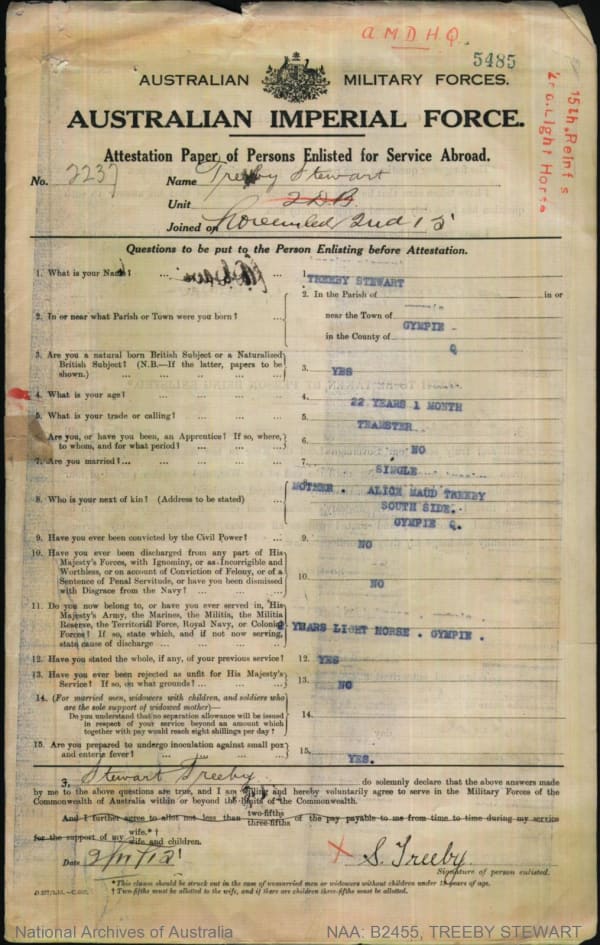 A M D H Q.
5485
15th Reinfs
2nd. Light Horse
AUSTRALIAN MILITARY FORCES.
AUSTRALIAN IMPERIAL FORCE.
Attestation Paper of Persons Enlisted for Service Abroad.
No. 2237 Name Treeby Stewart
Unit 2 D.B.
Joined on November 2nd 15
Questions to be put to the Person Enlisting before Attestation.
1. What is your Name? ... ... 1. TREEBY STEWART
2. In or near what Parish or Town were you born? ... 2. In the Parish of in or
near the Town of GYMPIE
in the County of Q
3. Are you a natural born British Subject or a Naturalized
British Subject? (N.B.—If the latter, papers to be
shown.) ... ... ... ... 3. YES
4. What is your age? ... ... ... ... 4. 22 YEARS 1 MONTH
5. What is your trade or calling? ... ... ... 5. TEAMSTER
Are you, or have you been, an Apprentice? If so, where,
to whom, and for what period? ... ... ... 6. NO
7. Are you married?... ... ... ... ... 7. SINGLE
8. Who is your next of kin? (Address to be stated) ... MOTHER. ALICE MAUD TREEBY
SOUTH SIDE.
GYMPIE Q.
9. Have you ever been convicted by the Civil Power? ... 9. NO
10. Have you ever been discharged from any part of His
Majesty's Forces, with Ignominy, or as Incorrigible and
Worthless, or on account of Conviction of Felony, or of a
Sentence of Penal Servitude, or have you been dismissed
with Disgrace from the Navy? ... ... ... 10. NO
11. Do you now belong to, or have you ever served in, His
Majesty's Army, the Marines, the Militia, the Militia
Reserve, the Territorial Force, Royal Navy, or Colonial
Forces? If so, state which, and if not now serving,
state cause of discharge ... ... ... YEARS LIGHT HORSE. GYMPIE.
12. Have you stated the whole, if any, of your previous service? 12. YES
13. Have you ever been rejected as unfit for His Majesty's
Service? If so, on what grounds? ... ... ... 13. NO
14. (For married men, widowers with children, and soldiers who
are the sole support of widowed mother)—
Do you understand that no separation allowance will be issued
in respect of your service beyond an amount which
together with pay would reach eight shillings per day? 14.
15. Are you prepared to undergo inoculation against small pox
and enteric fever? ... ... ... ... 15. YES.
I, Stewart Treeby do solemnly declare that the above answers made
by me to the above questions are true, and I am willing and hereby voluntarily agree to serve in the Military Forces of the
Commonwealth of Australia within or beyond the limits of the Commonwealth.
And I further agree to allot not less than two-fifths three-fifths of the pay payable to me from time to time during my service
for the support of my wife.*† wife and children.
Date 2/11/15 S. Treeby
Signature of person enlisted.
*This clause should be struck out in the case of unmarried men or widowers without children under 18 years of age.
† Two-fifths must be allotted to the wife, and if there are children three-fifths must be allotted.
National Archives of Australia NAA: B2455, TREEBY STEWART